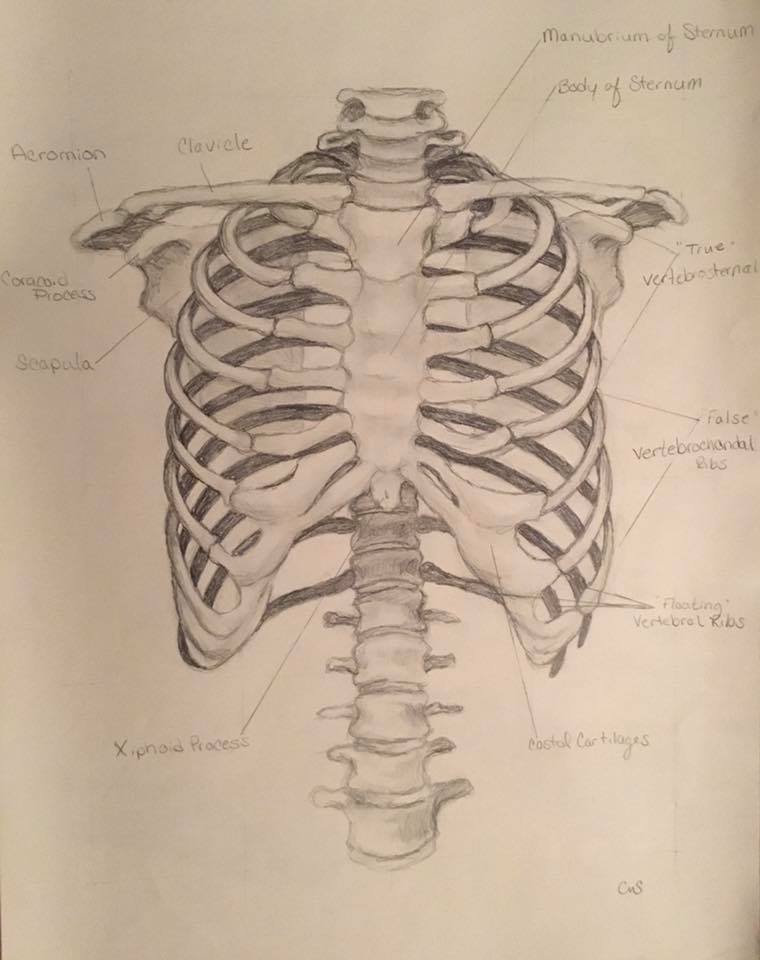 Manubrium of Sternum
Body of Sternum
Acromion
Clavicle
"True"
Vertebrosternal
Coracoid
Process
Scapula
"False"
Vertebrochondal
Ribs
"Floating"
Vertebral Ribs
Xiphoid Process
Costal Cartilages
CMS